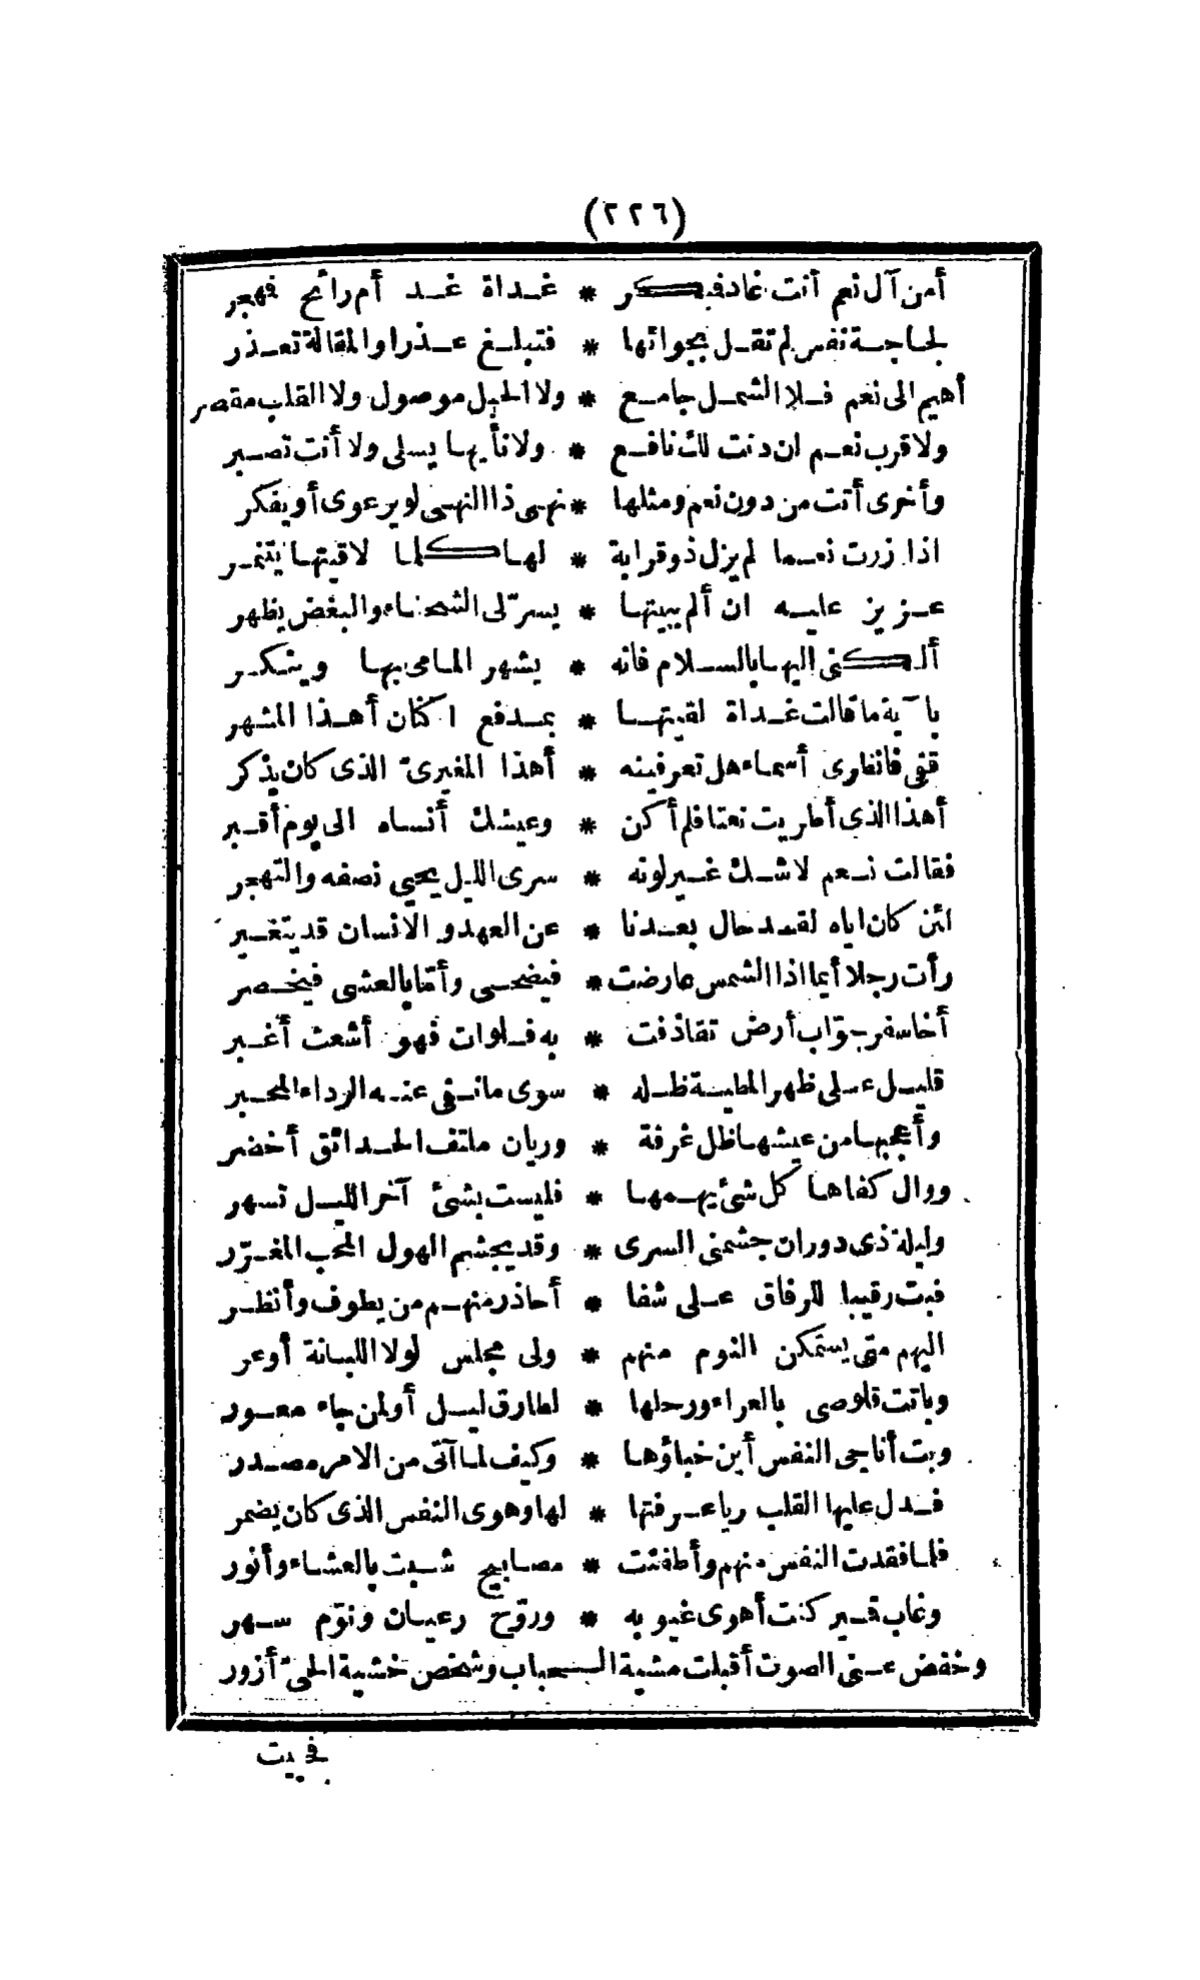 (٢٢٦)
أمن آل نعم أنت غاد فبكر * غداة غد أم رائح فهجر
لحاجة نفس لم تقل بجوابها * فتبلغ عذرا والمقالة تعذر
أهيم الى نعم فلا الشمل جامع * ولا الحبل موصول ولا القلب مقصر
ولا قرب نعم ان دنت لك نافع * ولا نأيها يسلى ولا أنت تصبر
وأخرى أتت من دون نعم ومثلها * نهى ذا النهى لو يرعوى أو يفكر
اذا زرت نعما لم يزل ذو قرابة * لها كلما لاقيتها يتنمر
عزيز عليه ان ألم ببيتها * يسرّ لى الشحناء والبغض يظهر
ألكنى اليها بالسلام فانه * يشهر المامى بها وينكر
با ية ما قالت غداة لقيتها * بمدفع اكنان أهذا المشهر
قفى فانظرى أسماء هل تعرفينه * أهذا المغيرىّ الذى كان يذكر
أهذا الذى أطريت نعتا فلم أكن * وعيشك أنساه الى يوم أقبر
فقالت نعم لا شك غير لونه * سرى الليل يحيى نصفه والتهجر
لئن كان اياه لقد حال بعدنا * عن العهد والانسان قد يتغير
رأت رجلا أيما اذا الشمس عارضت * فيضحى وأمّا بالعشى فيخصر
أخا سفر جوّاب أرض تقاذفت * به فلوات فهو أشعث أغبر
قليل على ظهر المطية ظله * سوى ما نفى عنه الرداء المحبر
وأعجبها من عيشها ظل غرفة * وريان ملتف الحدائق أخضر
ووال كفاها كل شئ يهمها * فليست بشئ آخر الليل تسهر
وليلة ذى دوران جشمنى السرى * وقد يجشم الهول المحب المغرّر
فبت رقيبا للرفاق على شفا * أحاذر منهم من يطوف وأنظر
اليهم متى يستمكن النوم منهم * ولى مجلس لولا اللبانة أوعر
وباتت قلوصى بالعراء ورحلها * لطارق ليل أو لمن جاء معور
وبت أناجى النفس أين خباؤها * وكيف لما آتى من الامر مصدر
فدل عليها القلب ريا عرفتها * لها وهوى النفس الذى كان يضمر
فلما فقدت النفس منهم وأطفئت * مصابيح شبت بالعشاء وأنور
وغاب قمير كنت أهوى غيوبه * وروّح رعيان ونوّم سهر
وخفض عنى الصوت أقبلت مشية الـ ـحباب وشخص خشية الحىّ أزور
فحييت